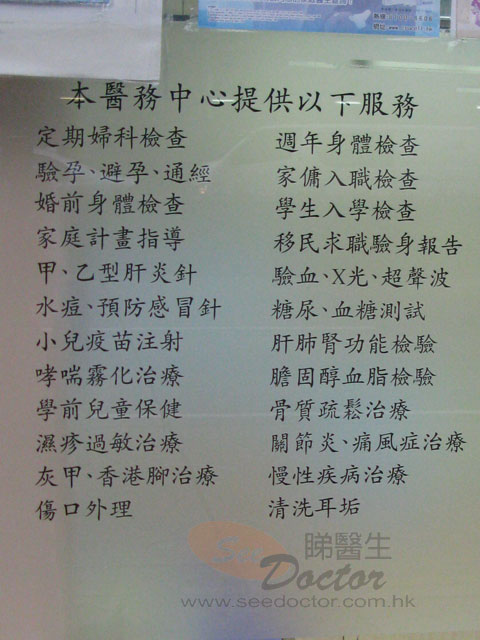 本醫務中心提供以下服務
定期婦科檢查
驗孕、避孕、通經
婚前身體檢查
家庭計畫指導
甲、乙型肝炎針
水痘、預防感冒針
小兒疫苗注射
哮喘霧化治療
學前兒童保健
濕疹過敏治療
灰甲、香港腳治療
傷口外理
週年身體檢查
家傭入職檢查
學生入學檢查
移民求職驗身報告
驗血、X光、超聲波
糖尿、血糖測試
肝肺腎功能檢驗
膽固醇血脂檢驗
骨質疏鬆治療
關節炎、痛風症治療
慢性疾病治療
清洗耳垢
See 睇醫生
Doctor
www.seedoctor.com.hk